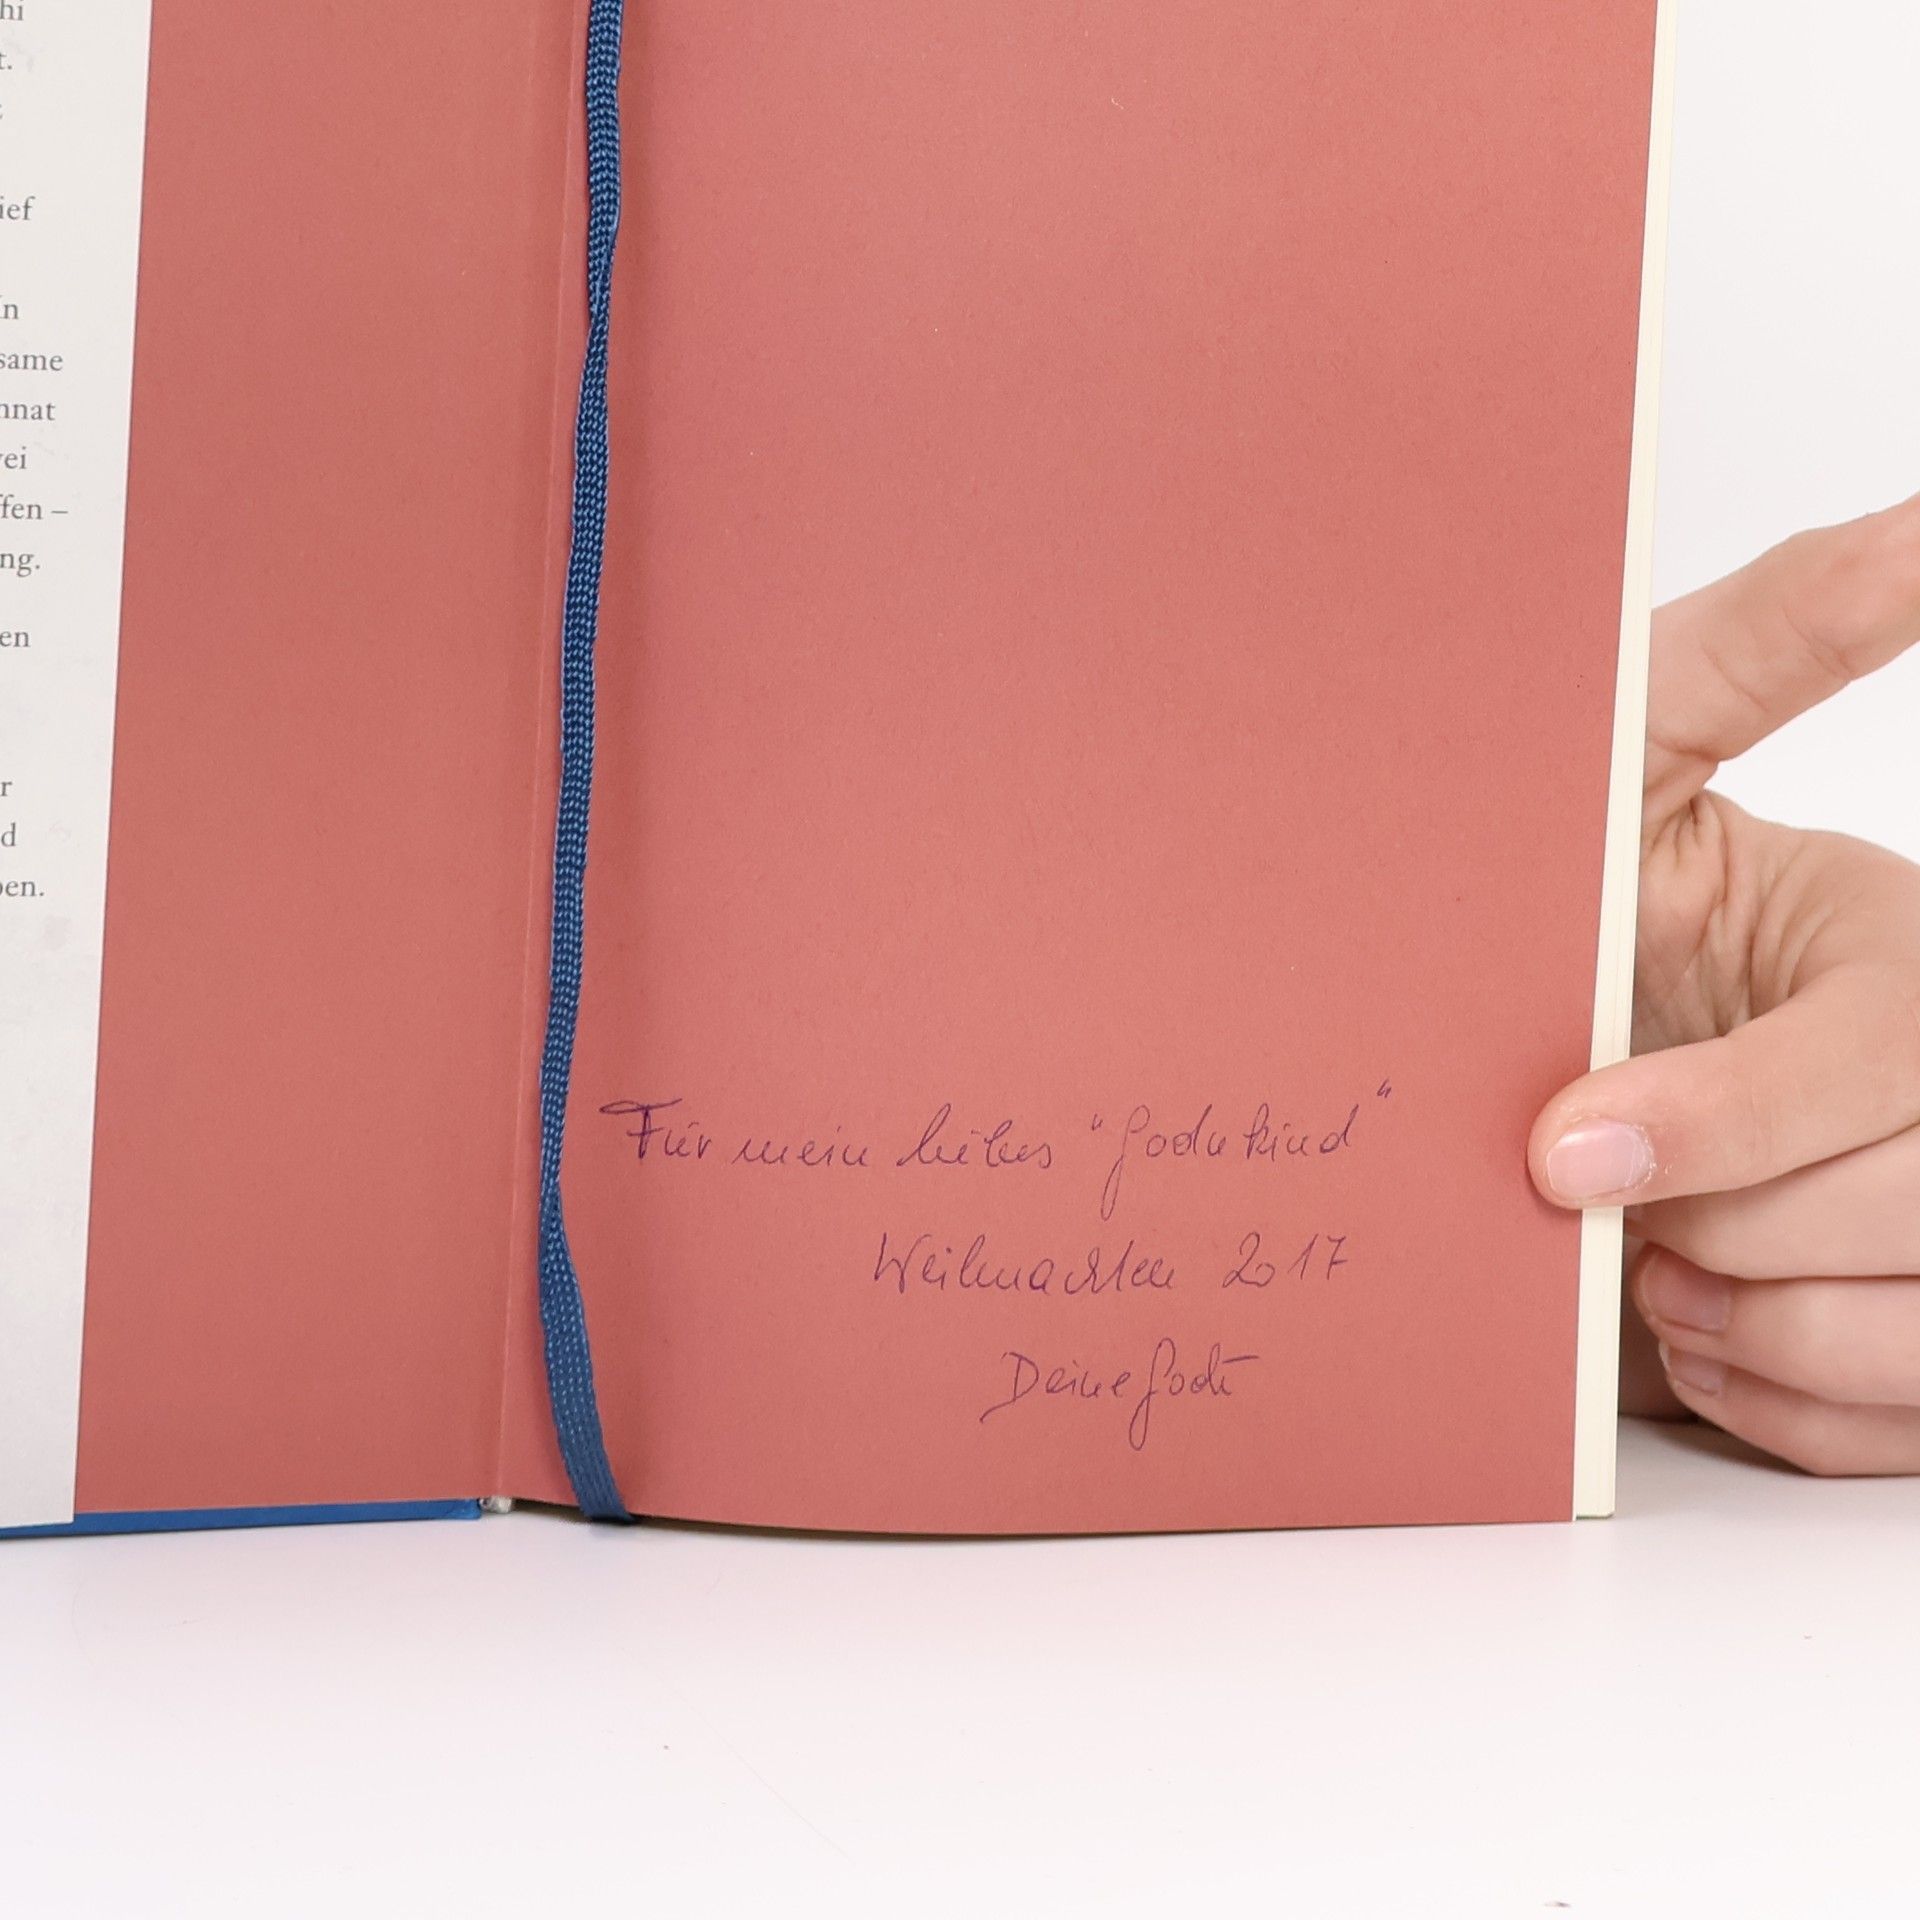 hi
t.
ief
In
same
nnat
vei
ffen –
ng.
en
r
d
ben.
Für mein liebes "Godekind"
Weihnachten 2017
Deine Gode